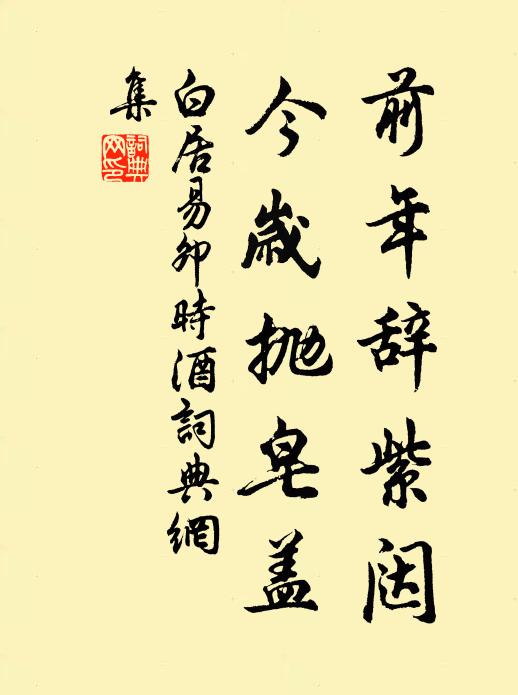 前年辞紫闼
今歲抛皂盖
白居易卯時酒詞典網
集
詞典
网印